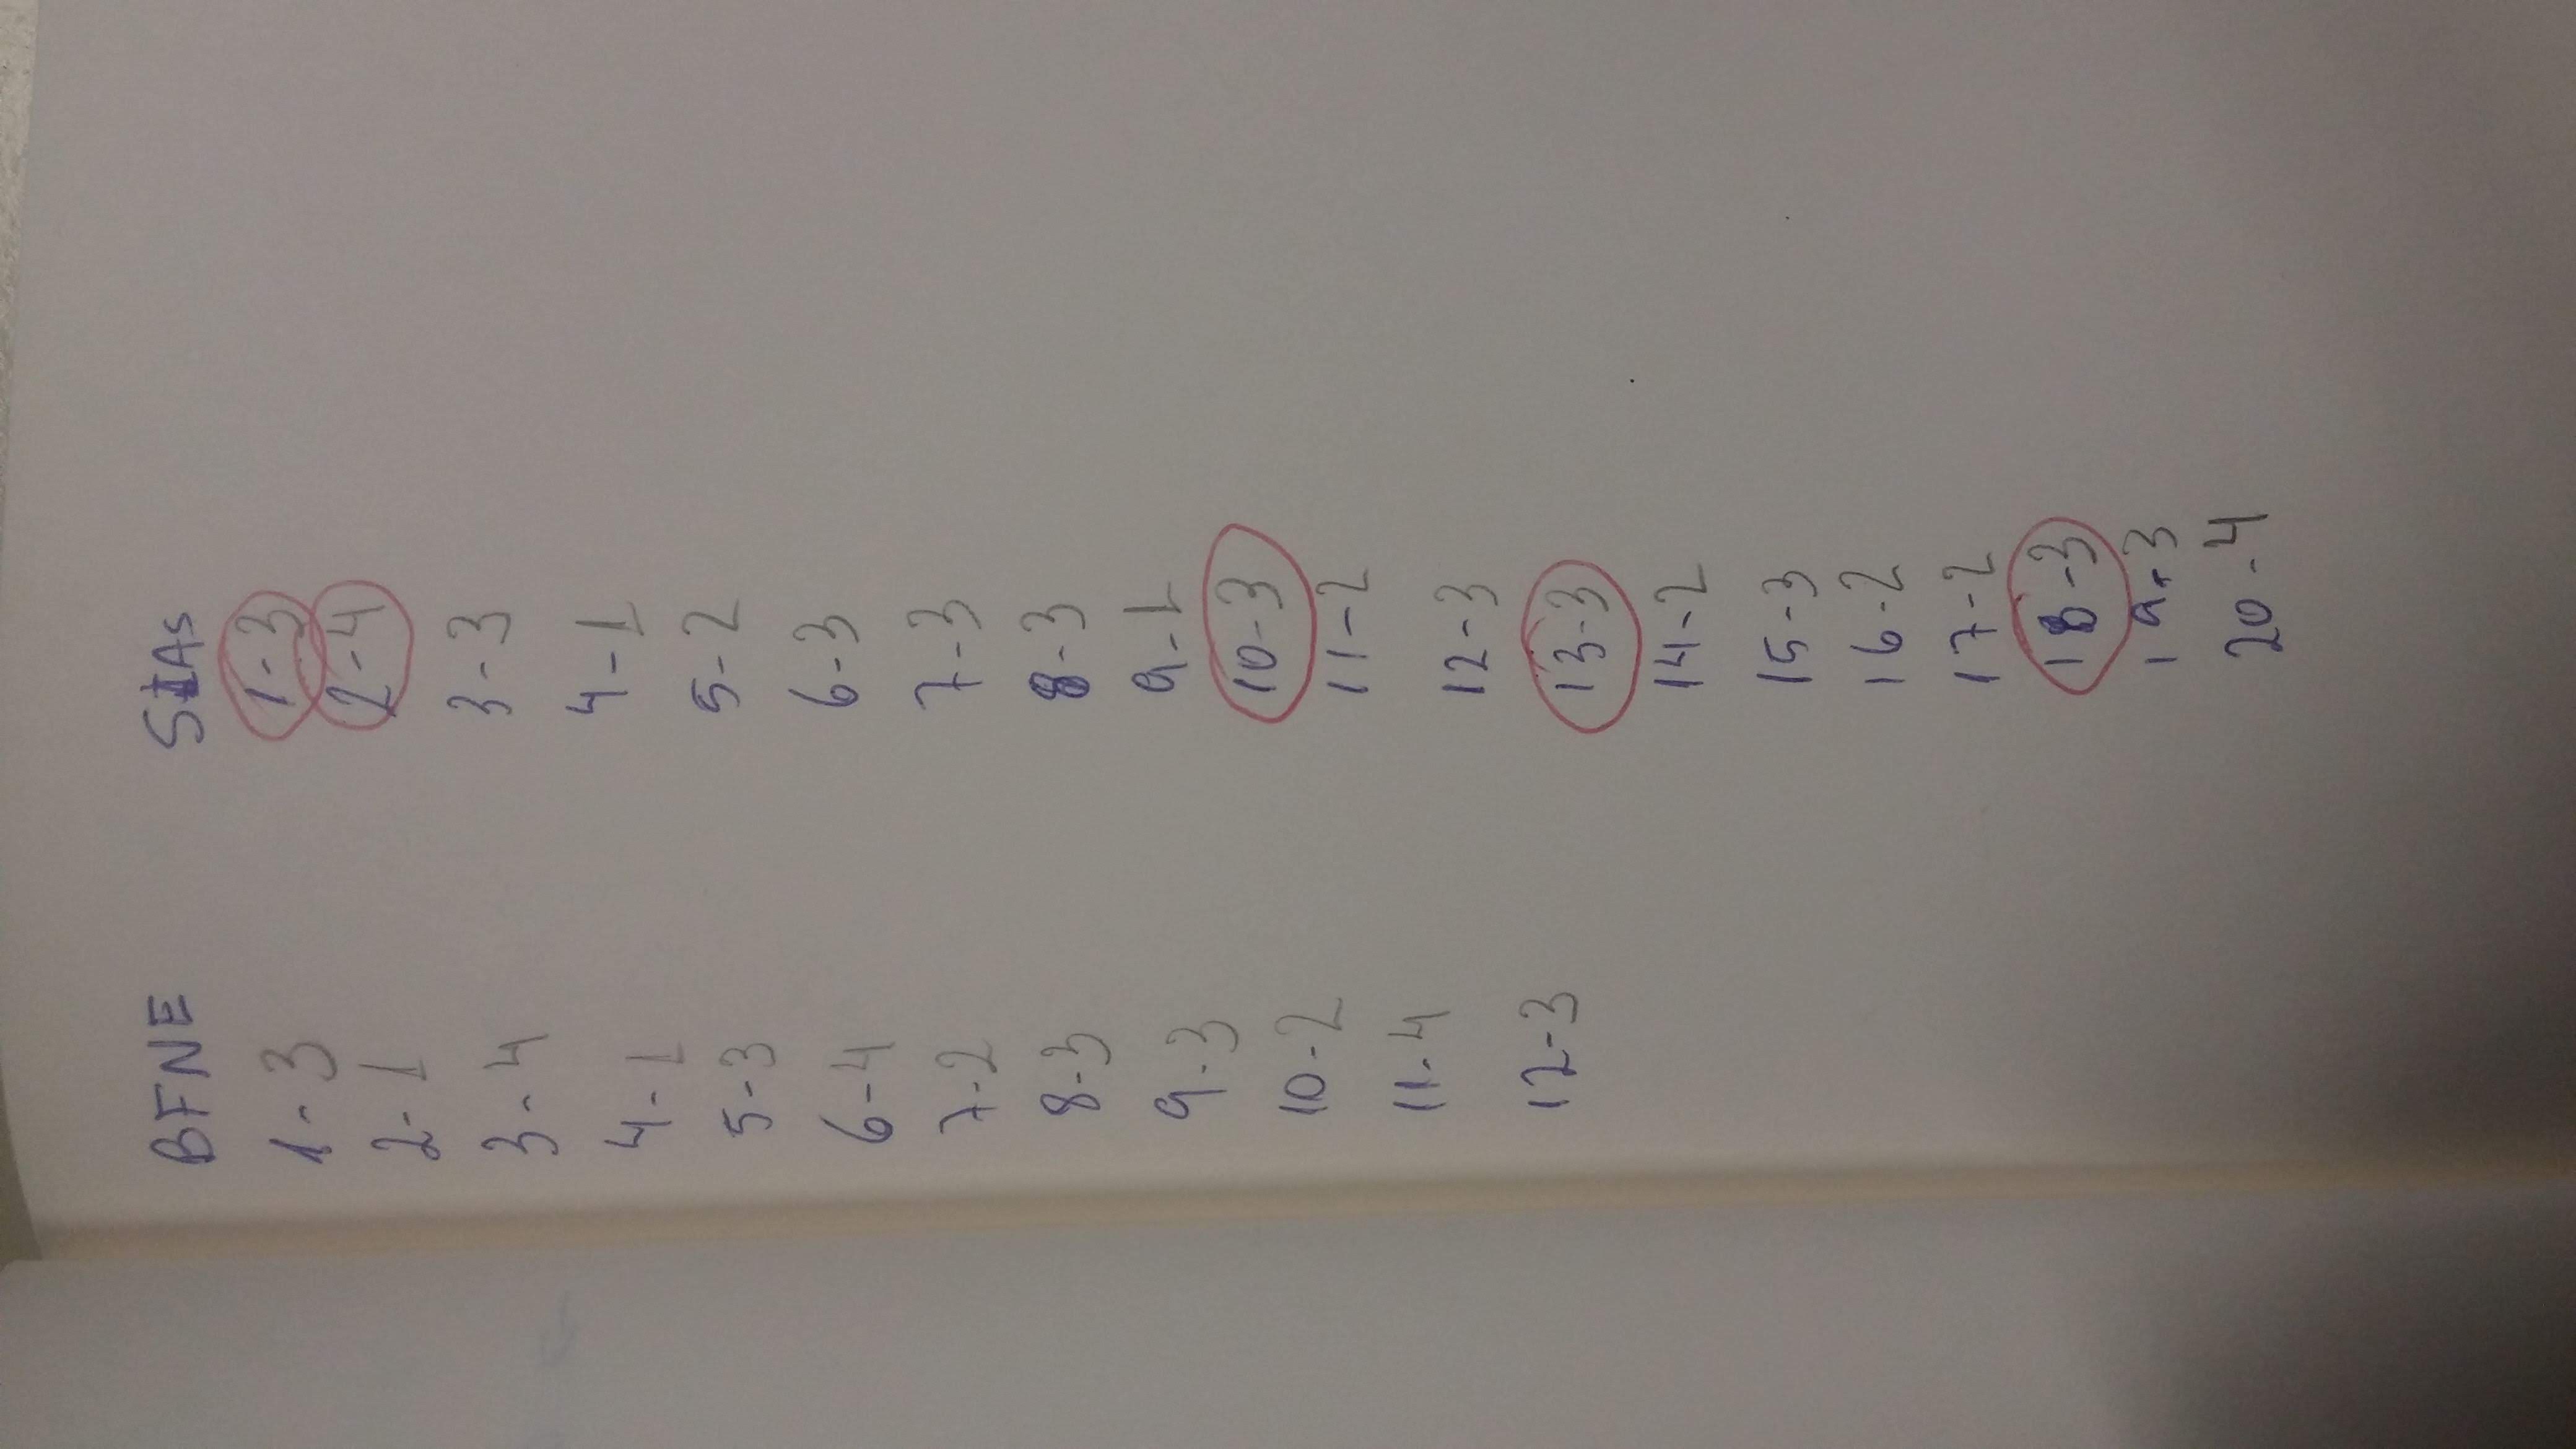 BFNE
1-3
2-1
3-4
4-1
5-3
6-4
7-2
8-3
9-3
10-2
11-4
12-3
SIAs
1-3
2-4
3-3
4-1
5-2
6-3
7-3
8-3
9-1
10-3
11-2
12-3
13-3
14-2
15-3
16-2
17-2
18-3
19-3
20-4